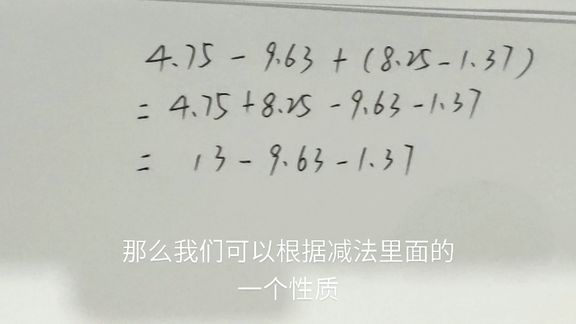 4.75 - 9.63 + (8.25 - 1.37)
= 4.75 + 8.25 - 9.63 - 1.37
= 13 - 9.63 - 1.37
那么我们可以根据减法里面的
一个性质